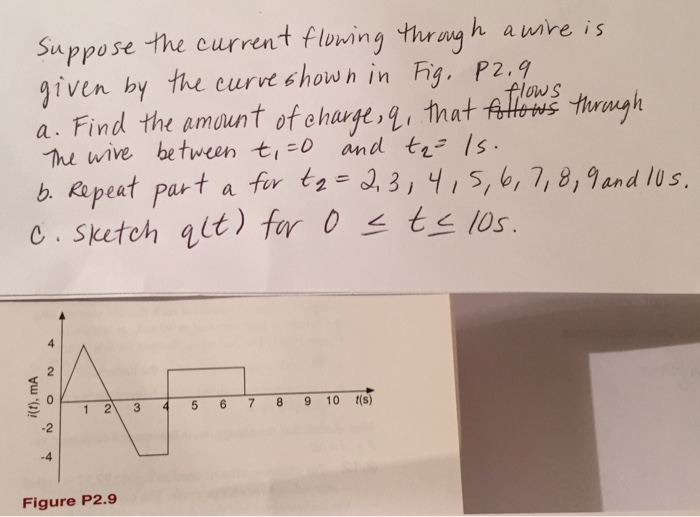 Suppose the current flowing through a wire is
given by the curve shown in Fig. P2.9
a. Find the amount of charge, q, that follows flows through
The wire between t₁=0 and t₂= 1s.
b. Repeat part a for t₂ = 2,3, 4, 5, 6, 7, 8, 9 and 10 s.
C. Sketch q(t) for 0 ≤ t ≤ 10s.
4
2
0
-2
-4
i(t), mA
1 2 3 4 5 6 7 8 9 10 t(s)
Figure P2.9